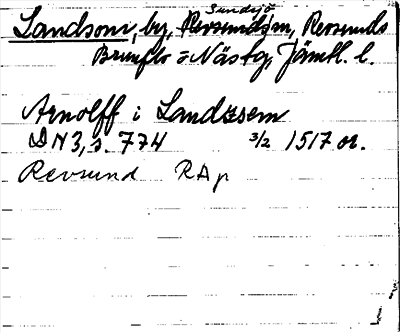 Landsom, by, Sundsjö Revsunds sn, Revsunds
Brunflo o Näs tg, Jämtl. l.
Arnolff i Landzsem
DN 3, s. 774 3/2 1517 or.
Revsund RAp